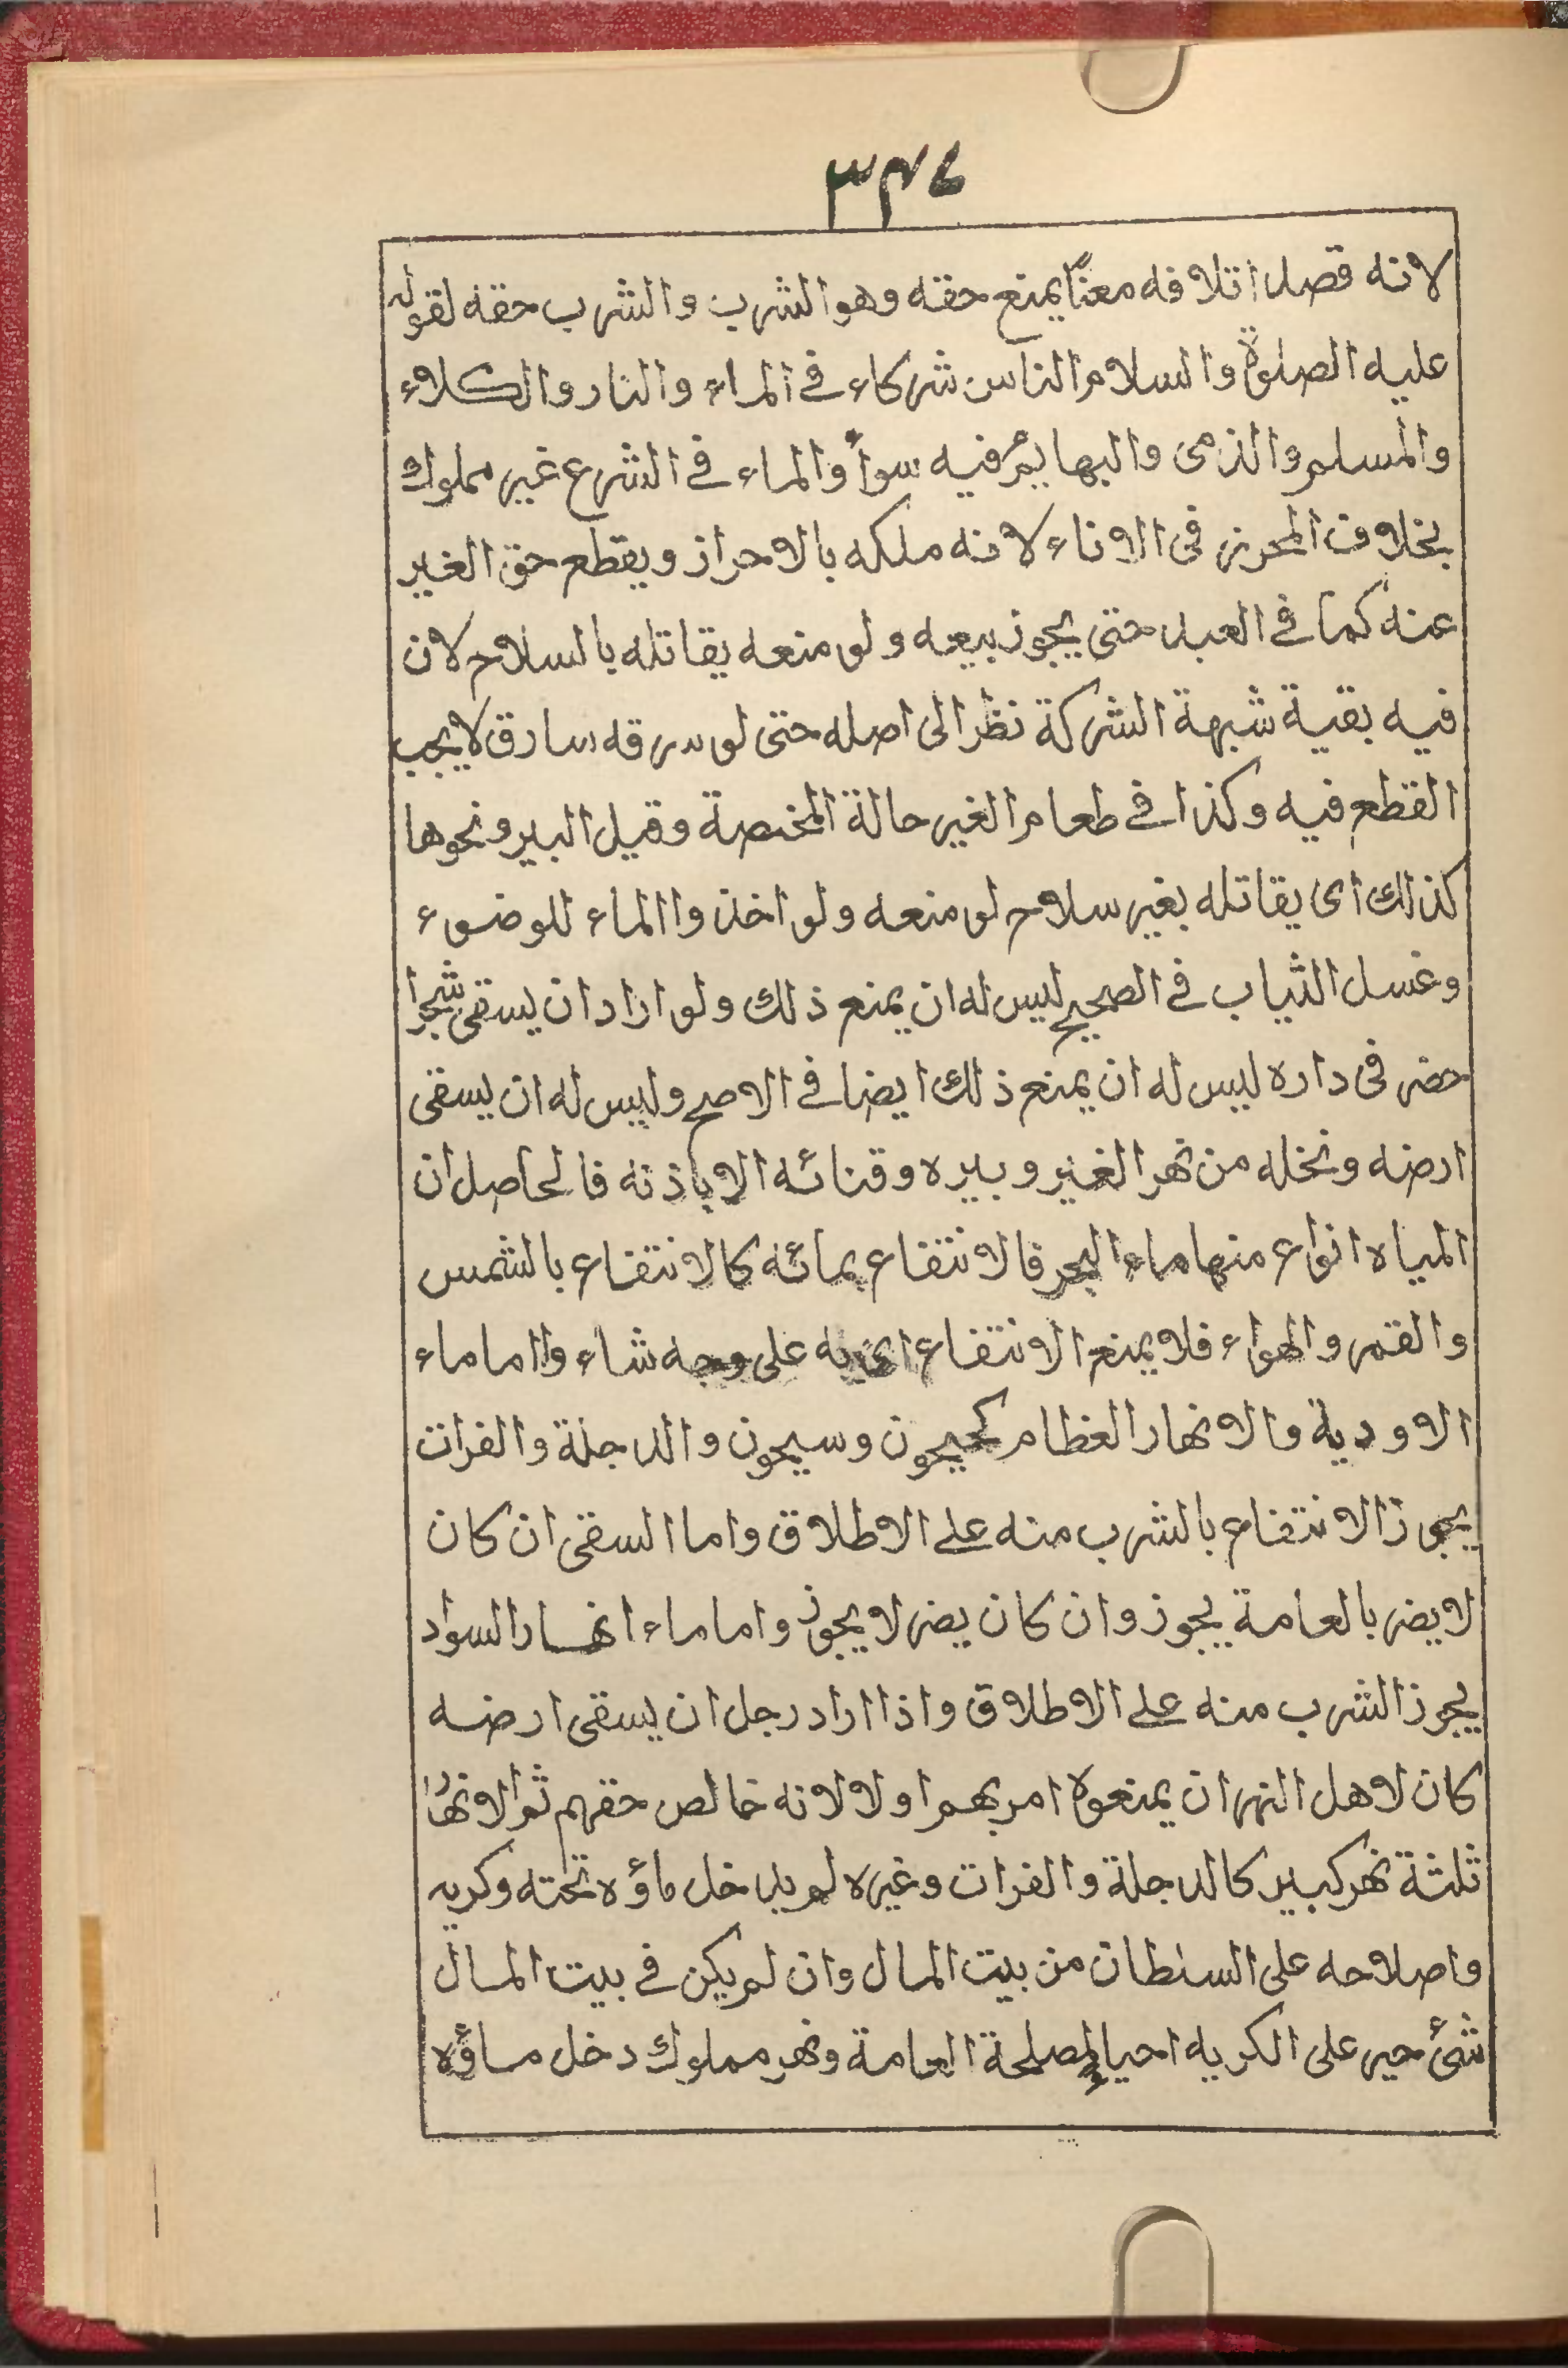 ۳۴۷
لانه قصد اتلافه معنًا يمنع حقه وهو الشرب والشرب حقه لقوله
عليه الصلوة والسلام الناس شركاء فى الماء والنار والكلاء
والمسلم والذمى والبهايم فيه سواءً والماء فى الشرع غير مملوك
بخلاف المحرز فى الاناء لانه ملكه بالاحراز ويقطع حق الغير
عنه كما فى العبد حتى يجوز بيعه ولو منعه يقاتله بالسلاح لان
فيه بقية شبهة الشركة نظرا الى اصله حتى لو سرقه سارق لايجب
القطع فيه وكذا فى طعام الغير حالة المخمصة وقيل البير ونحوها
كذالك اى يقاتله بغير سلاح لو منعه ولو اخذوا الماء للوضوء
وغسل الثياب فى الصحيح ليس له ان يمنع ذلك ولو اراد ان يسقى شجرا
حضر فى داره ليس له ان يمنع ذلك ايضا فى الاصح وليس له ان يسقى
ارضه ونخله من نهر الغير وبيره وقنائه الا باذنه فالحاصل ان
المياه انواع منها ماء البحر فالانتفاع بمائه كالانتفاع بالشمس
والقمر والهواء فلا يمنع الانتفاع به على وجه شاء واما ماء
الاودية والانهار العظام كجيحون وسيحون والدجلة والفرات
يجوز الانتفاع بالشرب منه على الاطلاق واما السقى ان كان
لا يضر بالعامة يجوز وان كان يضر لا يجوز واما ماء انهار السواد
يجوز الشرب منه على الاطلاق واذا اراد رجل ان يسقى ارضه
كان لاهل النهر ان يمنعوه امر بهم اولا لانه خالص حقهم ثم الانهار
ثلثة نهر كبير كالدجلة والفرات وغيره لم يدخل ماؤه تحته وكريه
واصلاحه على السلطان من بيت المال وان لم يكن فى بيت المال
شئ جبر على الكريه احيا لمصلحة العامة ونهر مملوك دخل ماؤه